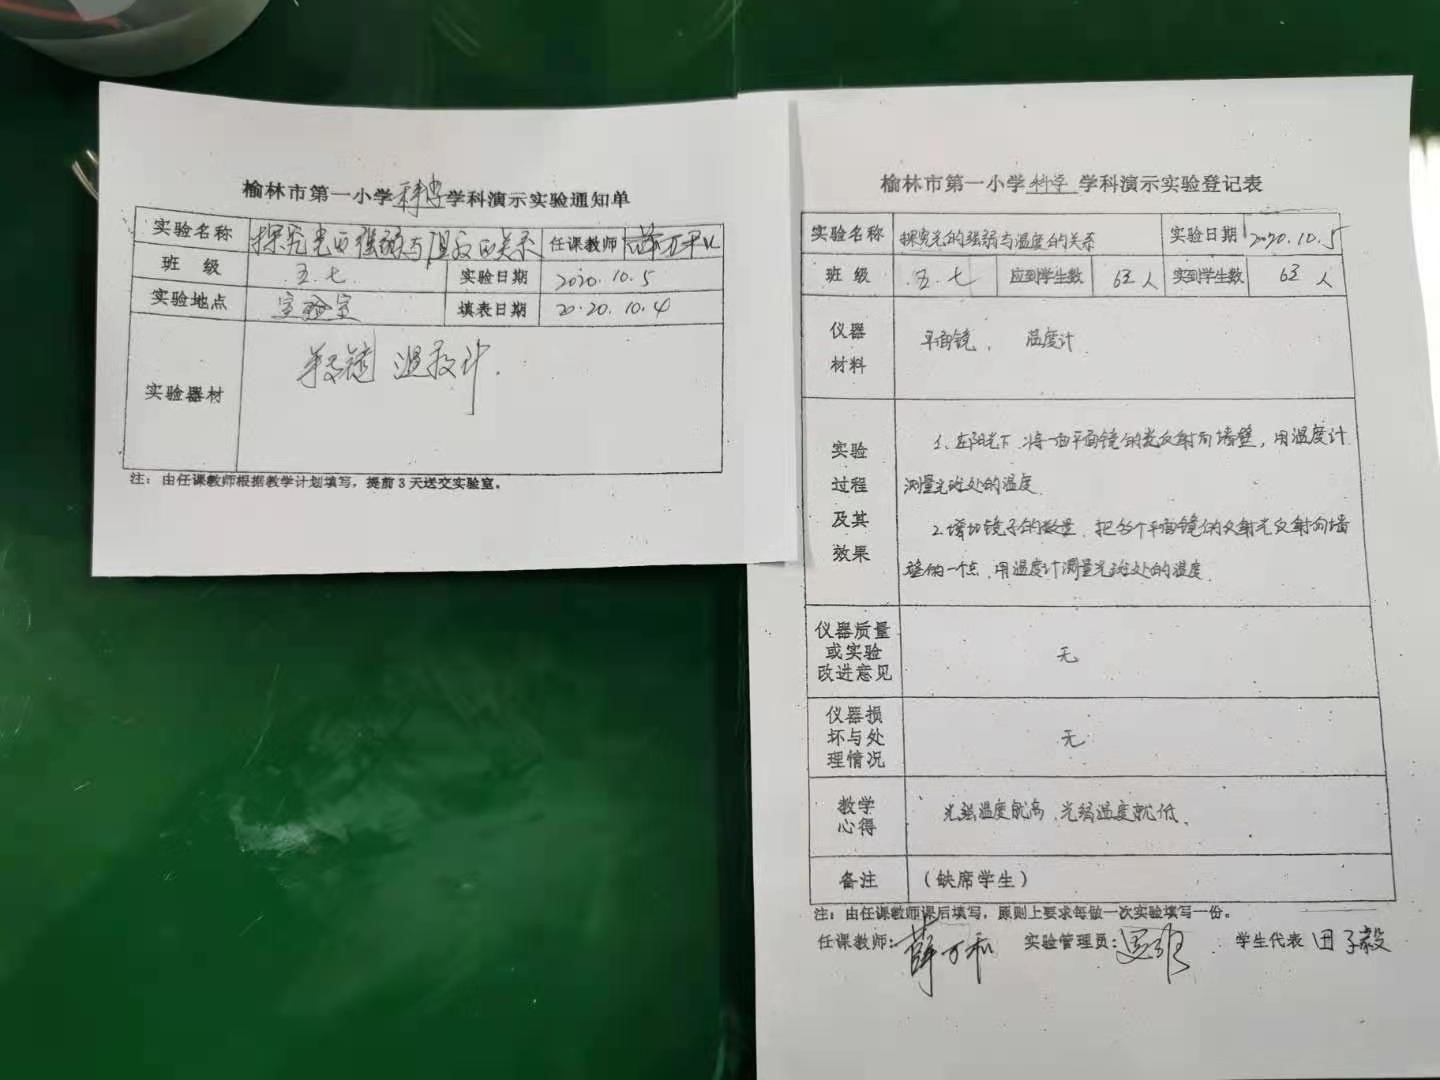 榆林市第一小学科学学科演示实验通知单
实验名称 探究光的强弱与温度的关系 任课教师
班 级 五.七 实验日期 2020.10.5
实验地点 实验室 填表日期 20.20.10.4
实验器材 平面镜 温度计.
注：由任课教师根据教学计划填写，提前3天送交实验室。
榆林市第一小学科学学科演示实验登记表
实验名称 探究光的强弱与温度的关系 实验日期 2020.10.5
班 级 五.七 应到学生数 63人 实到学生数 63人
仪器材料 平面镜、温度计
实验过程及其效果
1、在阳光下,将一面平面镜的光反射向墙壁，用温度计
测量光斑处的温度.
2.增加镜子的数量,把各个平面镜的反射光反射向墙
壁的一个点,用温度计测量光斑处的温度.
仪器质量或实验改进意见 无
仪器损坏与处理情况 无
教学心得 光强温度就高,光弱温度就低、
备注 （缺席学生）
注：由任课教师课后填写，原则上要求每做一次实验填写一份。
任课教师：薛万和 实验管理员： 学生代表 田子毅